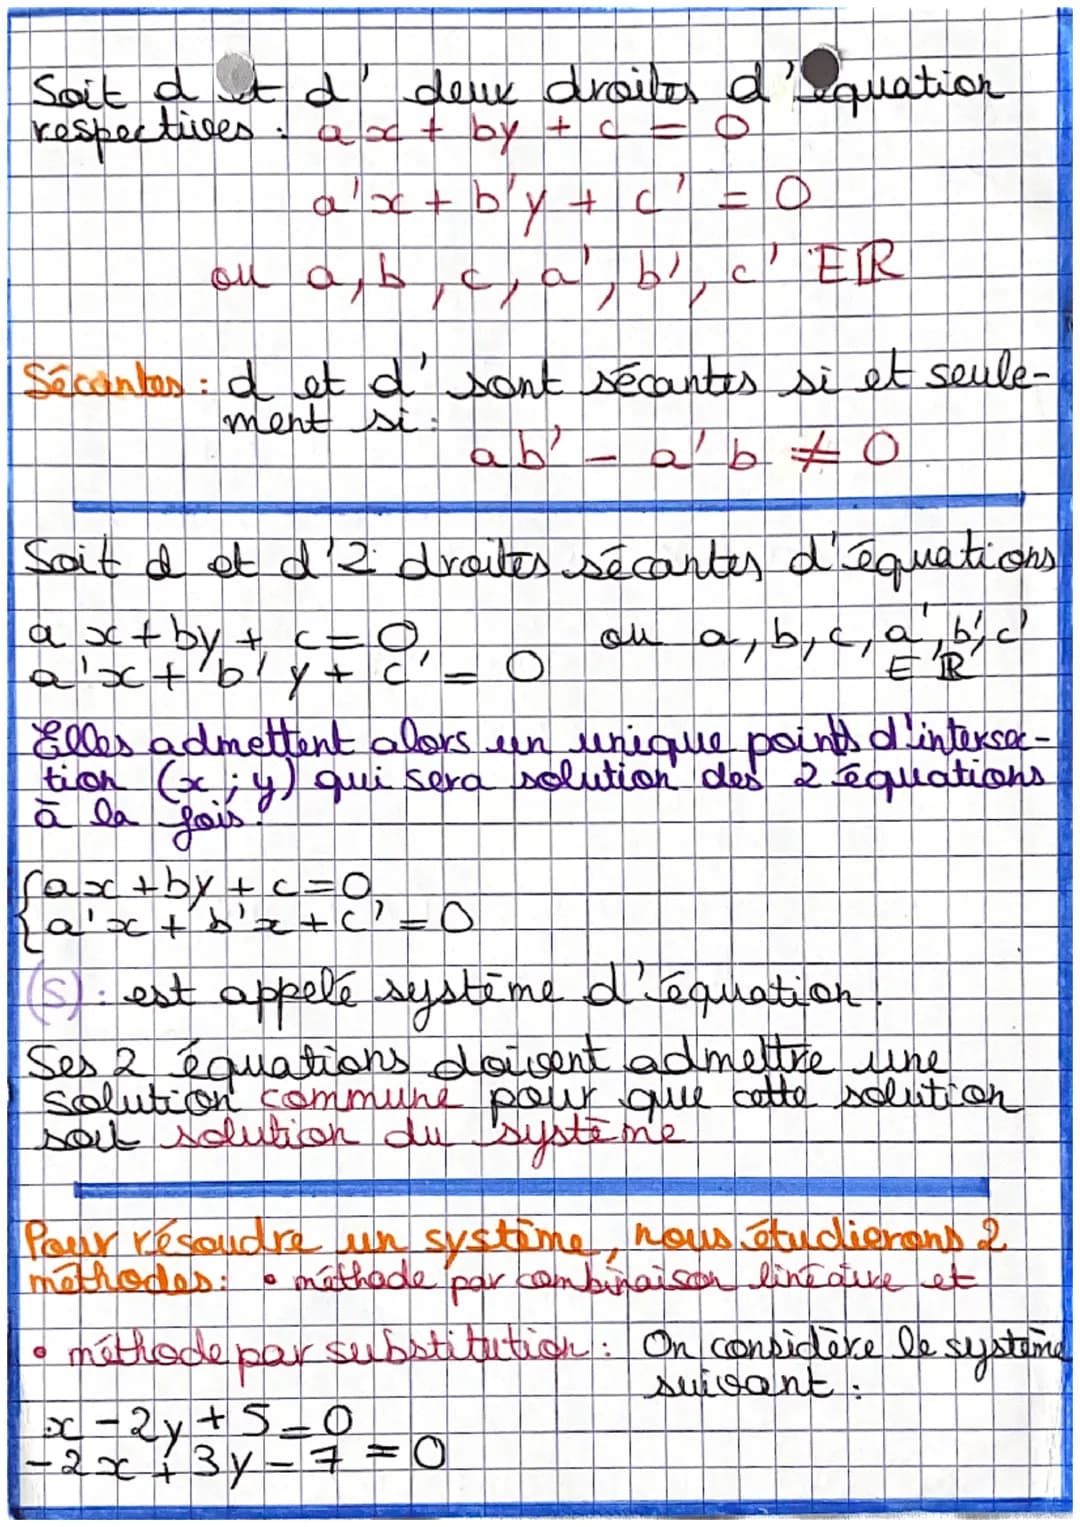 Soit d et d' deux droites d'équation
respectives : ax + by + c = 0
a'x + b'y + c' = 0
ou a, b, c, a', b', c' ∈ ℝ
Sécantes : d et d' sont sécantes si et seule-
ment si :
ab' - a'b ≠ 0
Soit d et d' 2 droites sécantes d'équations
ax + by + c = 0, ou a, b, c, a', b', c'
a'x + b'y + c' = 0 ∈ ℝ
Elles admettent alors un unique points d'intersec-
tion (x ; y) qui sera solution des 2 équations
à la fois.
{ax + by + c = 0
{a'x + b'x + c' = 0
(S) : est appelé système d'équation.
Ses 2 équations doivent admettre une
solution commune pour que cette solution
soit solution du système
Pour résoudre un système, nous étudierons 2
méthodes : • méthode par combinaison linéaire et
• méthode par substitution : On considère le système
suivant :
x - 2y + 5 = 0
-2x + 3y - 7 = 0